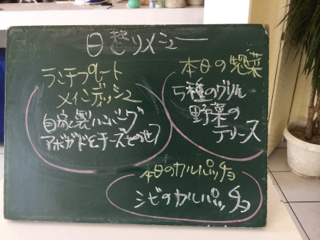 日替りメニュー
ランチプレート
メインディッシュ
自家製ハンバーグ
アボガドとチーズとのせ
本日の惣菜
5種のグリル
野菜の
テリーヌ
本日のカルパッチョ
シビのカルパッチョ